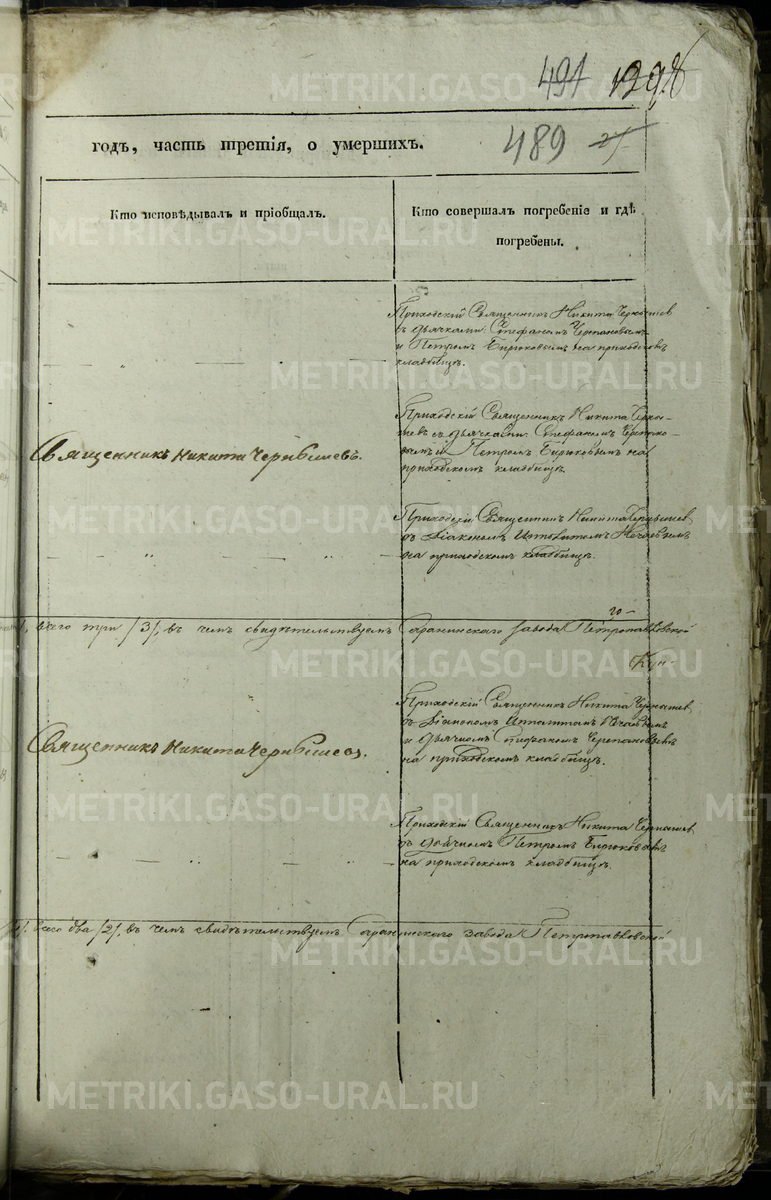 491 1398
489 25
годъ, часть третія, о умершихъ.
Кто исповѣдывалъ и пріобщалъ.
Кто совершалъ погребеніе и гдѣ
погребены.
Приходскій Священникъ Никита Чернышев
съ дьячками: Стефаномъ Черепановымъ
и Петромъ Бирюковымъ на приходскомъ
кладбищѣ.
Священникъ Никита Чернышевъ.
Приходскій Священникъ Никита Черны-
шевъ съ дьячками: Стефаномъ Черепано-
вымъ и Петромъ Бирюковымъ на
приходскомъ кладбищѣ.
Приходскій Священник Никита Чернышев
съ Діакономъ Ипполитомъ
на приходскомъ кладбищѣ.
го
всего три /3/, въ чемъ свидѣтельствуемъ Саранинскаго завода Петропавловской
Кун-
Священникъ Никита Чернышев.
Приходскій Священникъ Никита Чернышев
съ Діакономъ Ипполитомъ
и дьячкомъ Стефаномъ Черепановымъ
на приходскомъ кладбищѣ.
Приходскій Священникъ Никита Чернышев
съ дьячкомъ Петромъ Бирюковымъ
на приходскомъ кладбищѣ.
всего два /2/, въ чемъ свидѣтельствуемъ Саранинскаго завода Петропавловской
METRIKI.GASO-URAL.RU